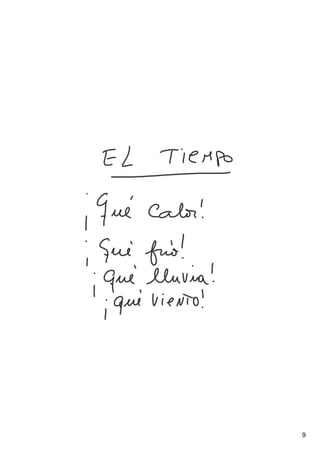 EL TIEMPO
¡Qué calor!
¡Qué frío!
¡Qué lluvia!
¡Qué viento!
9